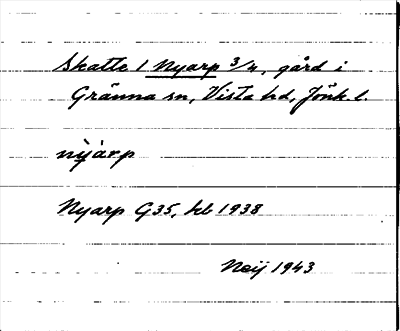 Skatte 1 Nyarp 3/4, gård i
Gränna sn, Vista hd, Jönk. l.
nỳjárp
Nyarp G35, kb 1938
Neij 1943